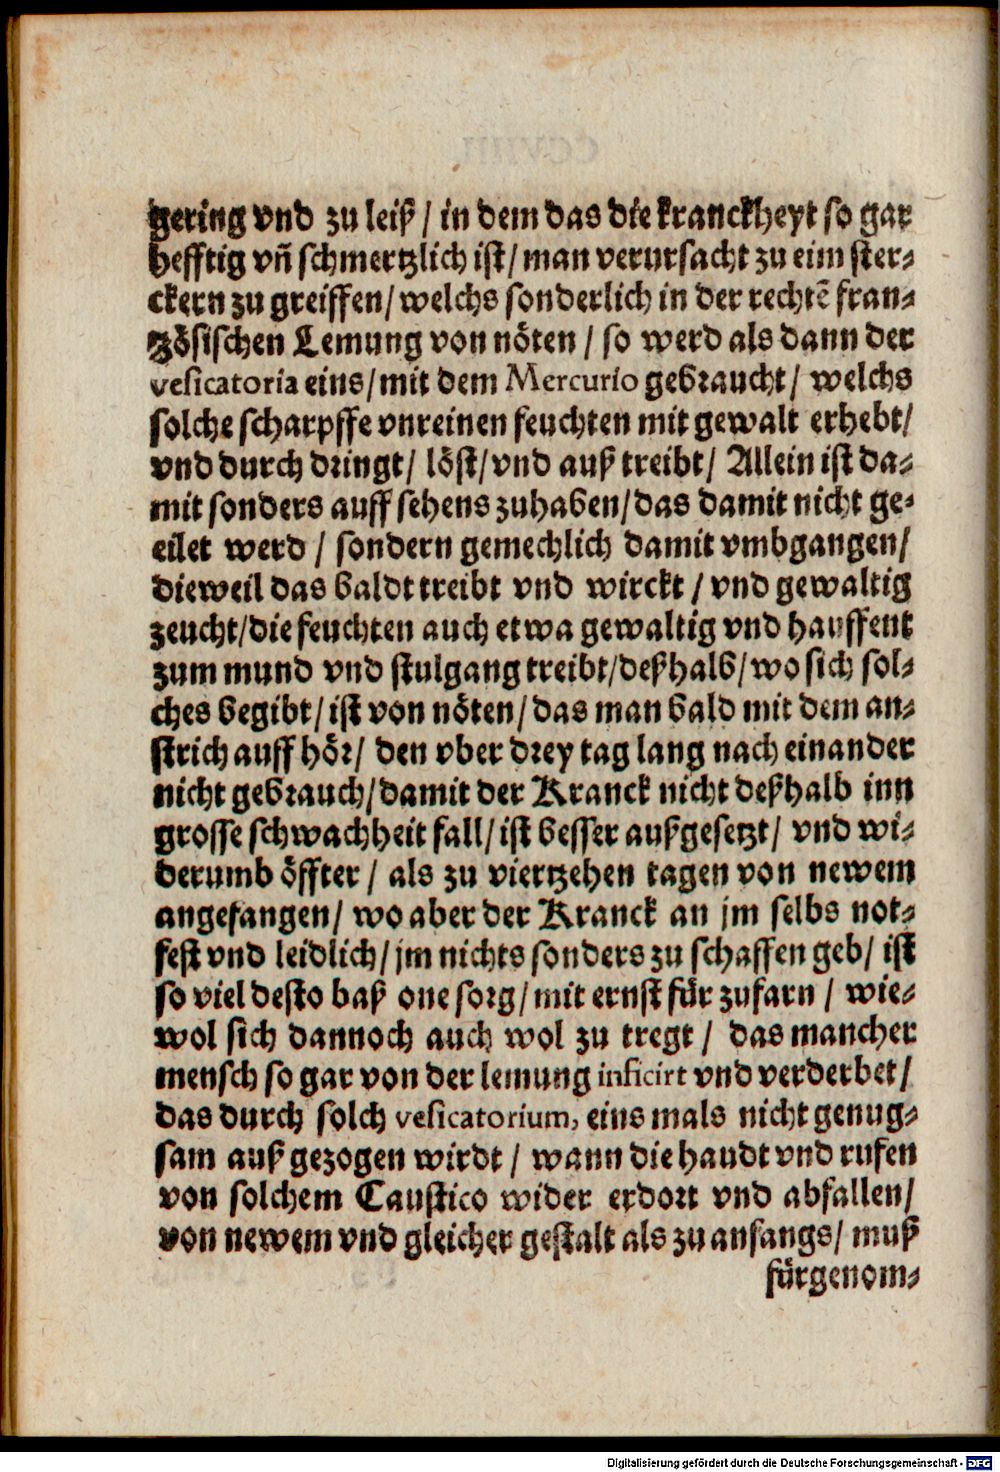 gering vnd zu leiß / in dem das die kranckheyt so gar
hefftig vñ schmertzlich ist / man verursacht zu eim ster⸗
ckern zu greiffen / welchs sonderlich in der rechtẽ fran⸗
tzösischen Lemung von nöten / so werd als dann der
vesicatoria eins / mit dem Mercurio gebraucht / welchs
solche scharpffe vnreinen feuchten mit gewalt erhebt /
vnd durch dringt / löst / vnd auß treibt / Allein ist da⸗
mit sonders auff sehens zuhaben / das damit nicht ge⸗
eilet werd / sondern gemechlich damit vmbgangen /
dieweil das baldt treibt vnd wirckt / vnd gewaltig
zeucht / die feuchten auch etwa gewaltig vnd hauffent
zum mund vnd stulgang treibt / deßhalb / wo sich sol⸗
ches begibt / ist von nöten / das man bald mit dem an⸗
strich auff hör / den vber drey tag lang nach einander
nicht gebrauch / damit der Kranck nicht deßhalb inn
grosse schwachheit fall / ist besser außgesetzt / vnd wi⸗
derumb öffter / als zu viertzehen tagen von newem
angefangen / wo aber der Kranck an jm selbs not⸗
fest vnd leidlich / jm nichts sonders zu schaffen geb / ist
so viel desto baß one sorg / mit ernst für zufarn / wie⸗
wol sich dannoch auch wol zu tregt / das mancher
mensch so gar von der lemung inficirt vnd verderbet /
das durch solch vesicatorium, eins mals nicht genug⸗
sam auß gezogen wirdt / wann die haudt vnd rufen
von solchem Caustico wider erdort vnd abfallen /
von newem vnd gleicher gestalt als zu anfangs / muß
fürgenom⸗
Digitalisierung gefördert durch die Deutsche Forschungsgemeinschaft - DFG